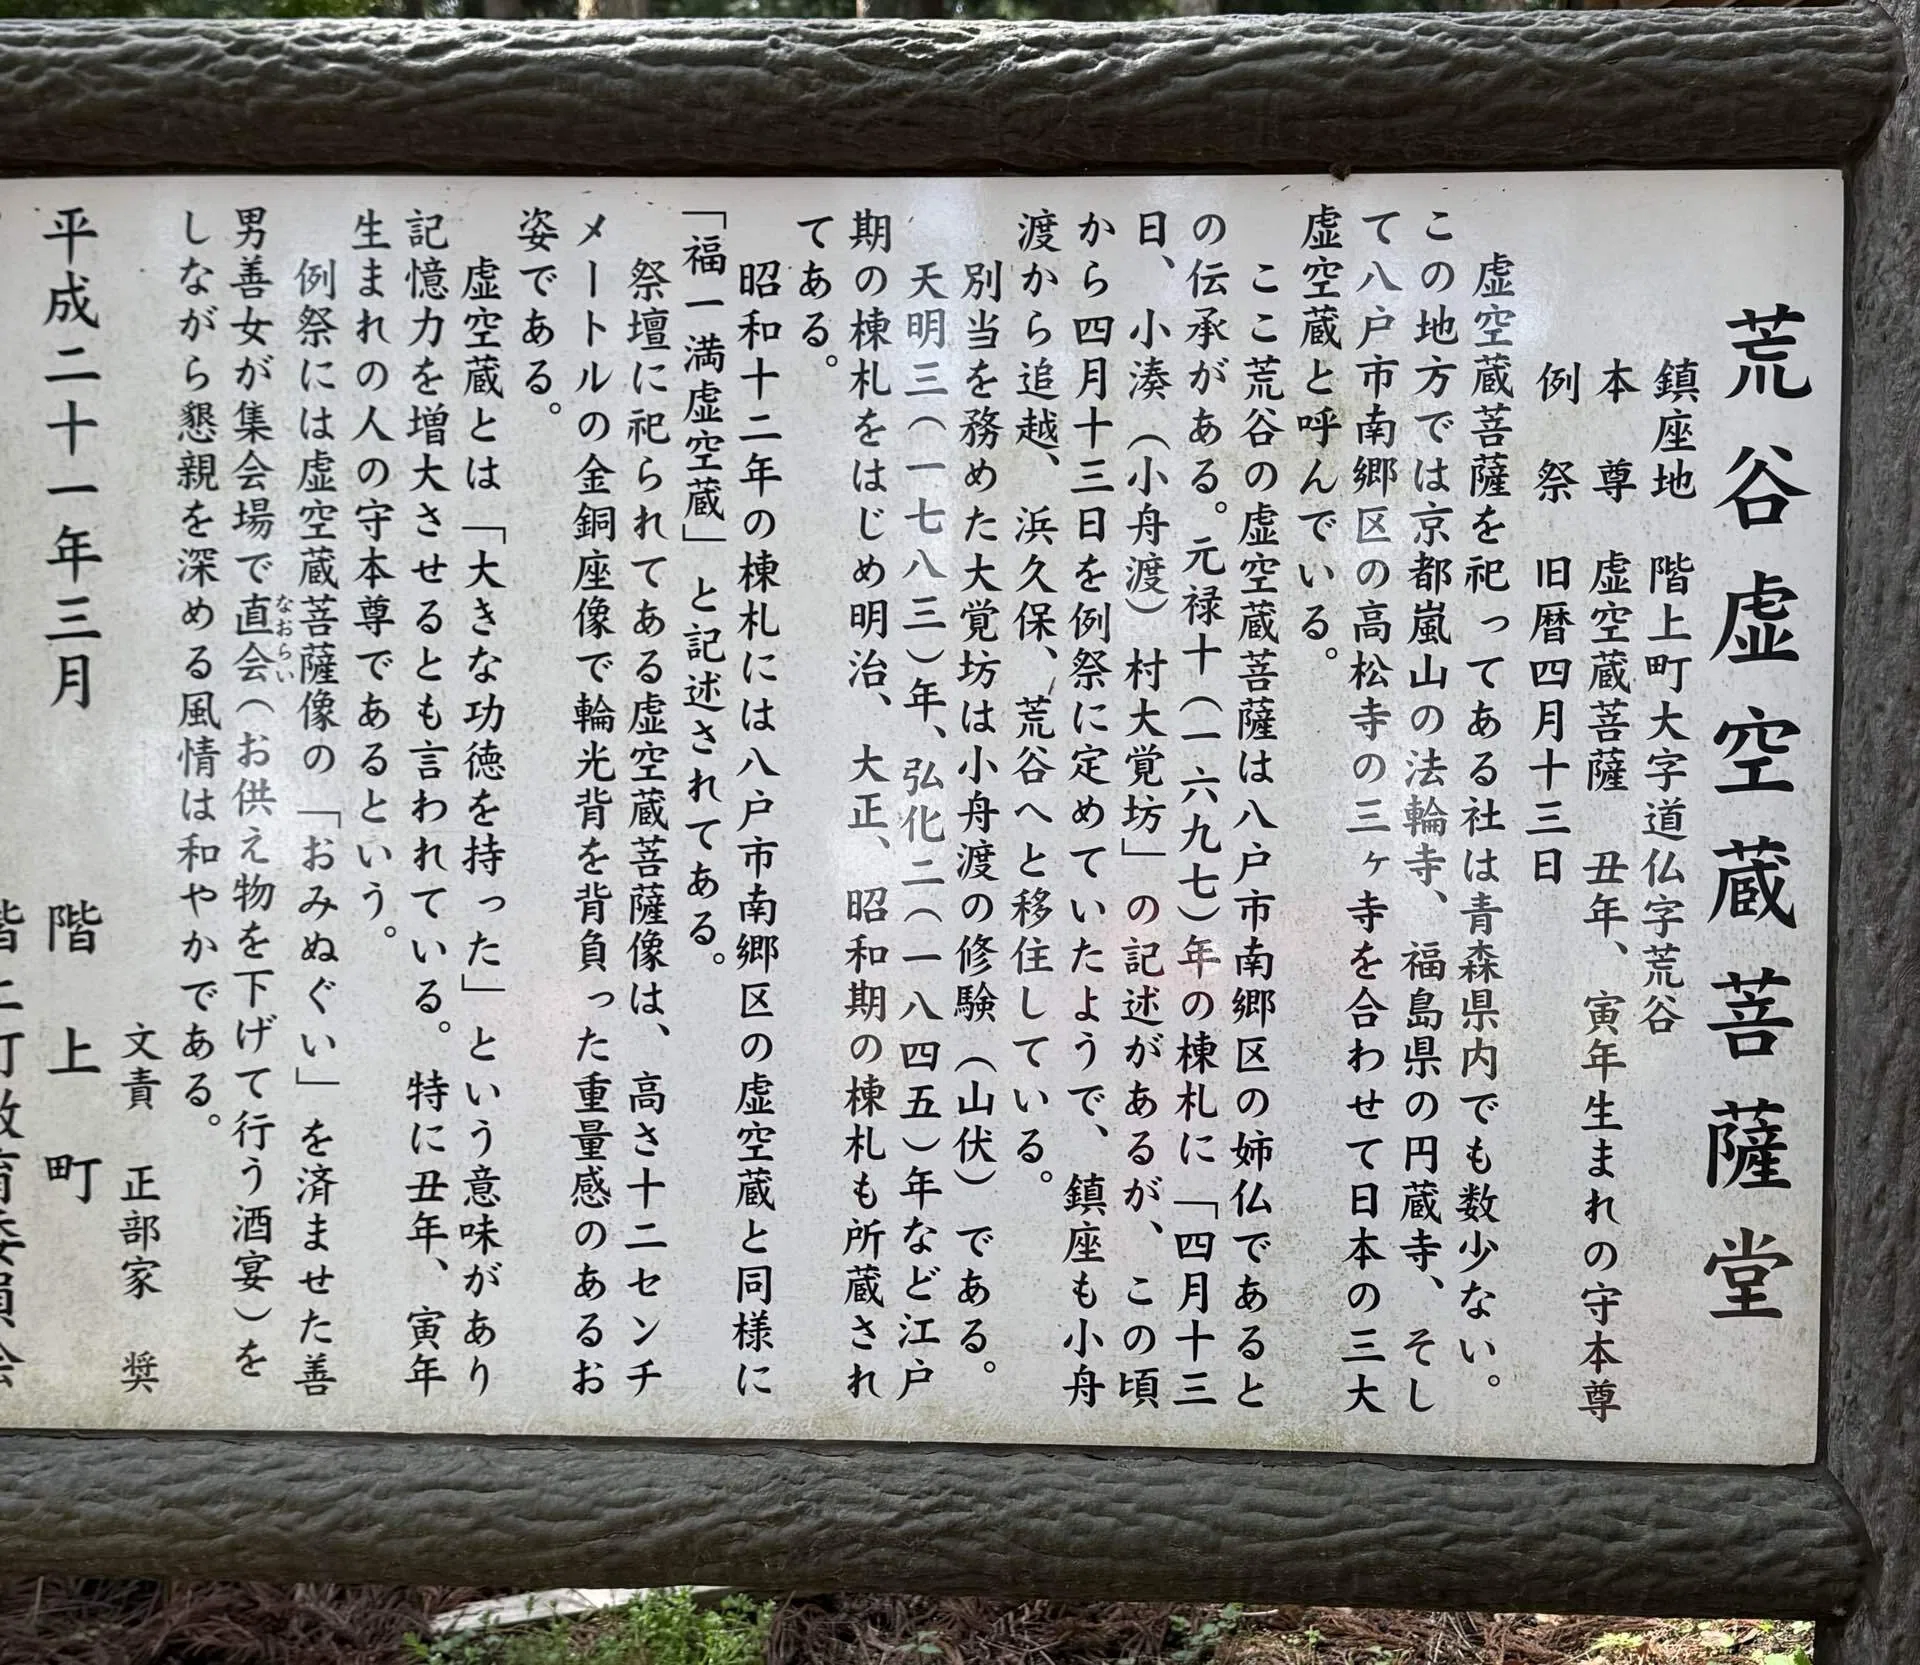 荒谷虚空蔵菩薩堂
鎮座地　階上町大字道仏字荒谷
本　尊　虚空蔵菩薩　丑年、寅年生まれの守本尊
例　祭　旧暦四月十三日
虚空蔵菩薩を祀ってある社は青森県内でも数少ない。
この地方では京都嵐山の法輪寺、福島県の円蔵寺、そし
て八戸市南郷区の高松寺の三ヶ寺を合わせて日本の三大
虚空蔵と呼んでいる。
ここ荒谷の虚空蔵菩薩は八戸市南郷区の姉仏であると
の伝承がある。元禄十（一六九七）年の棟札に「四月十三
日、小湊（小舟渡）村大覚坊」の記述があるが、この頃
から四月十三日を例祭に定めていたようで、鎮座も小舟
渡から追越、浜久保、荒谷へと移住している。
別当を務めた大覚坊は小舟渡の修験（山伏）である。
天明三（一七八三）年、弘化二（一八四五）年など江戸
期の棟札をはじめ明治、大正、昭和期の棟札も所蔵され
てある。
昭和十二年の棟札には八戸市南郷区の虚空蔵と同様に
「福一満虚空蔵」と記述されてある。
祭壇に祀られてある虚空蔵菩薩像は、高さ十二センチ
メートルの金銅座像で輪光背を背負った重量感のあるお
姿である。
虚空蔵とは「大きな功徳を持った」という意味があり
記憶力を増大させるとも言われている。特に丑年、寅年
生まれの人の守本尊であるという。
例祭には虚空蔵菩薩像の「おみぬぐい」を済ませた善
男善女が集会場で直会（お供え物を下げて行う酒宴）を
なおらい
しながら懇親を深める風情は和やかである。
文責　正部家　奨
平成二十一年三月　階上町
階上町教育委員会